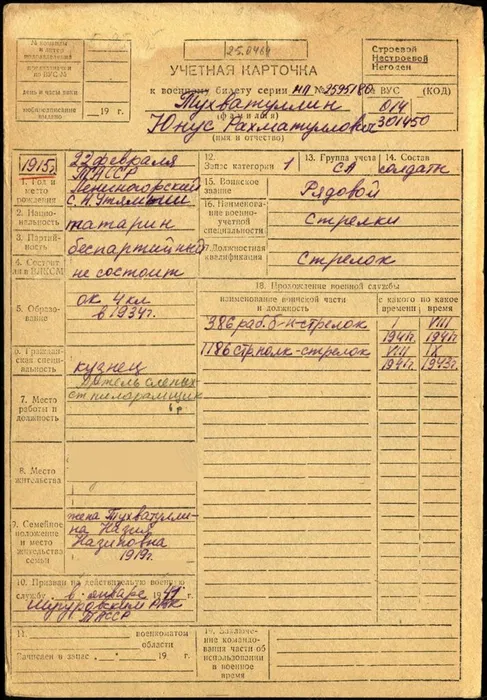 25.0464
Строевой
Нестроевой
Негоден
УЧЕТНАЯ КАРТОЧКА
к военному билету серии НП № 2595180
ВУС (КОД)
Тухватуллин
014
(фамилия)
Юнус Рахматуллович
301450
(имя и отчество)
день и часы явки
19 г.
1915г.
22 февраля
ТАССР
Лениногорский
1. Год и место рождения
2. Национальность татарин
3. Партийность беспартийный
4. Состоит ли в ВЛКСМ не состоит
5. Образование
ок 4 кл
в 1934г.
6. Гражданская специальность кузнец
7. Место работы и должность
8. Место жительства
9. Семейное положение и место жительства семьи
жена Тухватуллина Назия
Назиповна
1919г.
10. Призван на действительную военную службу в январе 1941
РВК
ТАССР
11. военкоматом
области
Зачислен в запас 19 г.
12. Запас категории 1
13. Группа учета СА
14. Состав солдаты
15. Воинское звание Рядовой
16. Наименование военно-учетной специальности стрелки
17. Должностная квалификация стрелок
18. Прохождение военной службы
наименование воинской части и должность
с какого времени
по какое время
386 раб. б-н-стрелок
I 1941г.
VIII 1941г.
1186 стр. полк-стрелок
VIII 1941г.
IX 1943г.
19. Заключение командования части об использовании в военное время